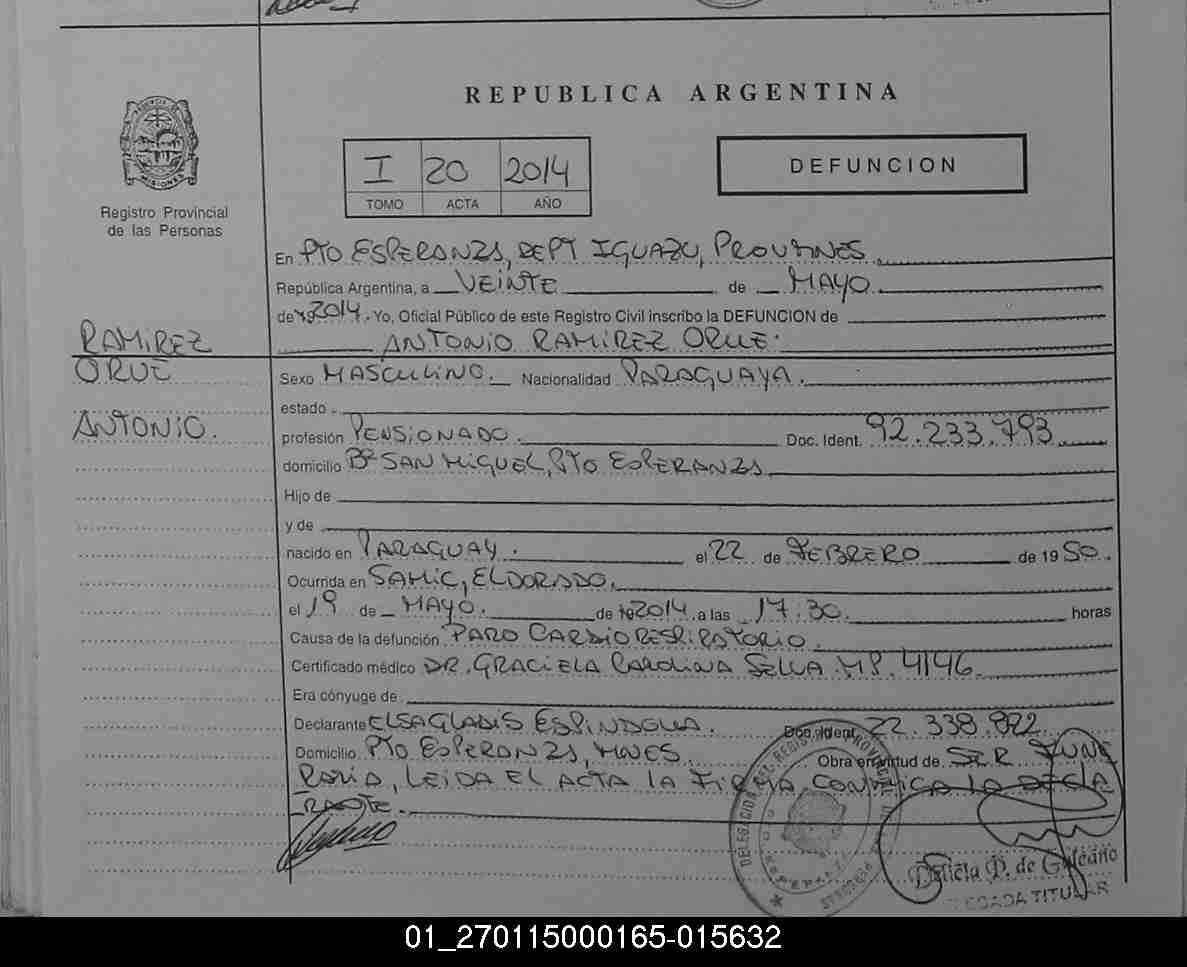 REPUBLICA ARGENTINA
I 20 2014
TOMO ACTA AÑO
DEFUNCION
Registro Provincial
de las Personas
MISIONES
En PTO ESPERANZA, DEPT IGUAZU, PROV MNES
República Argentina, a VEINTE de MAYO
de 2014. Yo, Oficial Público de este Registro Civil inscribo la DEFUNCION de
ANTONIO RAMIREZ ORUE.
RAMIREZ
ORUE
ANTONIO.
Sexo MASCULINO. Nacionalidad PARAGUAYA.
estado
profesión PENSIONADO. Doc. Ident. 92.233.793
domicilio Bº SAN MIGUEL, PTO ESPERANZA
Hijo de
y de
nacido en PARAGUAY. el 22 de FEBRERO de 19 50.
Ocurrida en SAMIC, ELDORADO.
el 19 de MAYO. de 2014 a las 17.30. horas
Causa de la defunción PARO CARDIORESPIRATORIO.
Certificado médico DR. GRACIELA CAROLINA MP. 4146.
Era cónyuge de
Declarante ELSA GLADIS ESPINDOLA. Doc. Ident. 22.338.822
Domicilio PTO ESPERANZA, MNES. Obra en virtud de SER FUNE
RARIA, LEIDA EL ACTA LA FIRMA CONMIGA LA DECLA
RANTE.
DELEGACION REGISTRO PROVINCIAL DE LAS PERSONAS
Delicia D. de Galeano
DELEGADA TITULAR
01_270115000165-015632